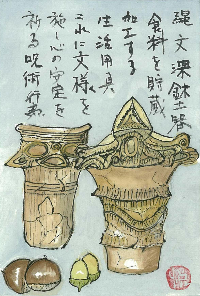 縄文深鉢土器
食料を貯蔵
加工する
生活用具
これに文様を
施し心の安定を
祈る呪術行為